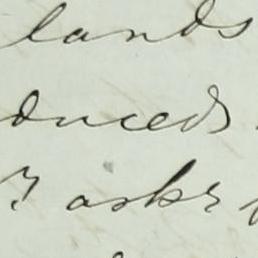 lands
duced
? asks